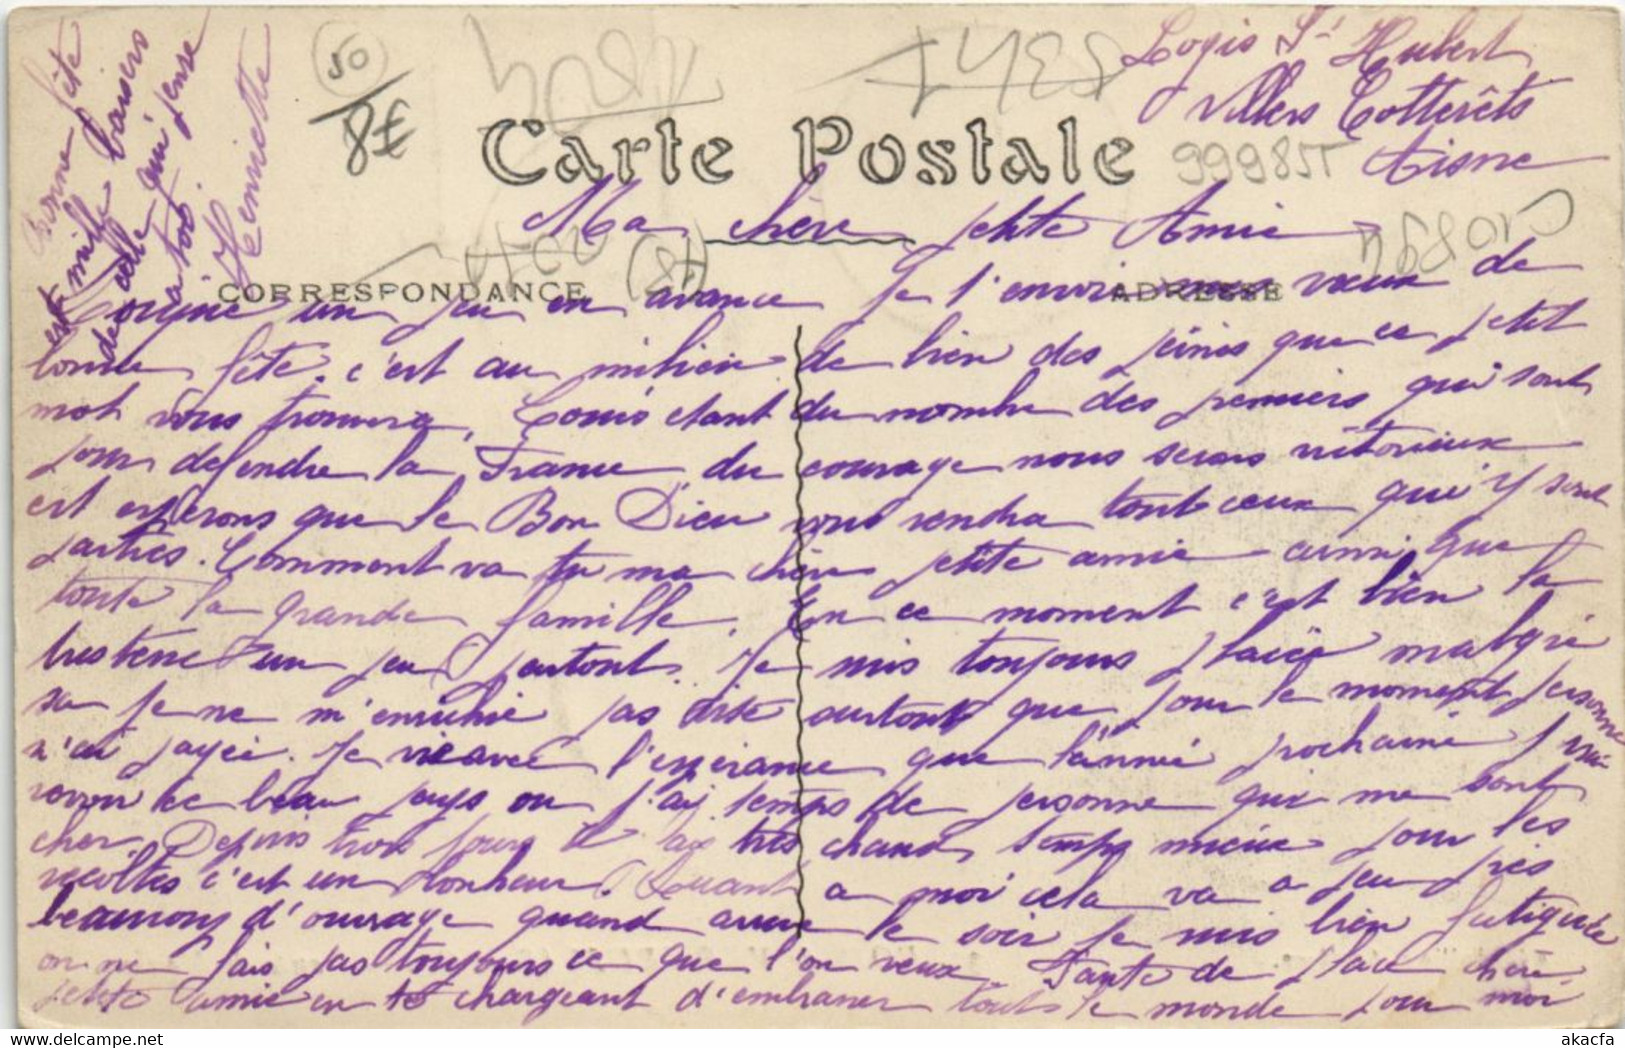 Logis St Hubert
Villers Cotterêts
Aisne
50
8€
Carte Postale
999857
CORRESPONDANCE
ADRESSE
Ma chère petite Amie
un peu en avance je t'envoi mes vœux de
bonne fête, c'est au milieu de bien des peines que ce petit
mot vous trouvera, Louis étant du nombre des premiers qui sont
pour defendre la France, du courage nous serons victorieux
est esperons que le Bon Dieu vous rendra tout ceux qui y sont
partis. Comment va tu ma chère petite amie ainsi que
toute la grande famille. En ce moment c'est bien la
tristesse un peu partout. Je suis toujours placée malgré
sa je ne m'enrichie pas vite surtout que pour le moment personne
n'ai payé. Je vie avec l'espérance que l'année prochaine j'irai
revoir ce beau pays ou j'ai temps de personne qui me sont
cher. Depuis trois jours il fait très chaud, temps mieux pour les
récoltes c'est un bonheur. Quant a moi cela va a peu près
beaucoup d'ouvrage quand arrive le soir je suis bien fatiguée
on ne fais pas toujours ce que l'on veux. Faute de place chère
petite amie en te chargeant d'embrasser touts le monde pour moi
Bonne fête
est mille baisers
de celle qui pense
a toi
Henriette